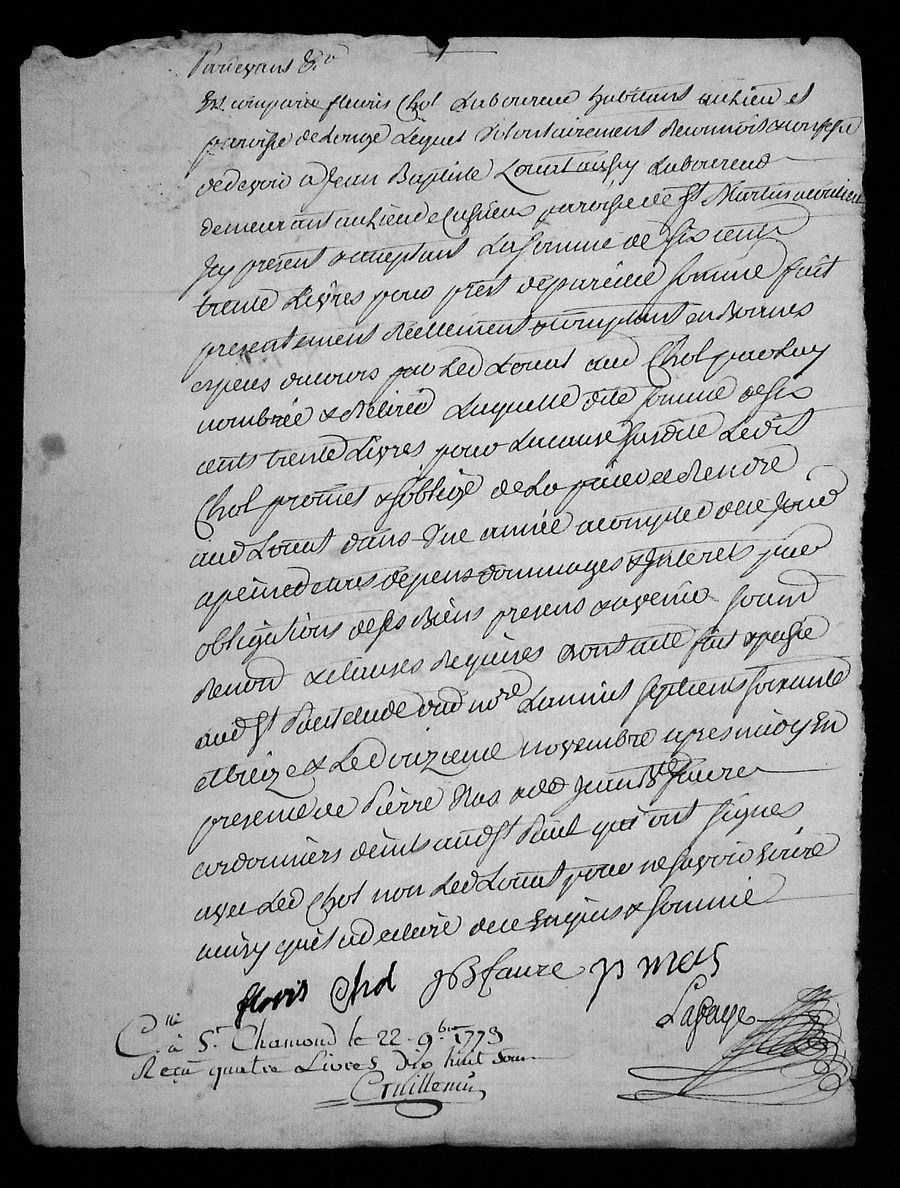 Pardevant &ca
Est comparu fleuris Chol Laboureur habitant au lieu et
parroisse de Longe Lequel volontairement Reconnoit & confesse
de devoir a Jean Baptiste Louat aussy Laboureur
demeurant au lieu de parroisse de St Martin acoalieu
Icy present & acceptant La somme de six cents
trente Livres pour prest de pareille somme fait
presentement Reellement & comptant en Bonnes
especes du cours par Led Louat aud Chol par Luy
nombrée & Retirée Laquelle dite somme de six
cents trente Livres pour La cause susdite Ledit
Chol promet & s'oblige de La païer et Rendre
aud Louat dans Une année a compter de ce Jour
a peine de tous depens dommages & Interets par
obligations de ses Biens presens & avenir soumis
Renon & clauses Requises dont acte fait & passé
aud St Paul etude dud nore L'an mil sept cents soixante
et treize & Le onzieme novembre apres midy En
presence de Pierre Mas & de Jean Bte faure
cordonniers deints aud St Paul qui ont signés
avec Led Chol non Led Louat pour ne savoir ecrire
ainsy qu'il a declaré de ce Enquis & sommé
floris Chol JB faure p mas
Lafaye
Cllé à St Chamond le 22 9bre 1773
Reçu quatre Livres dix huit sous
Guillemin